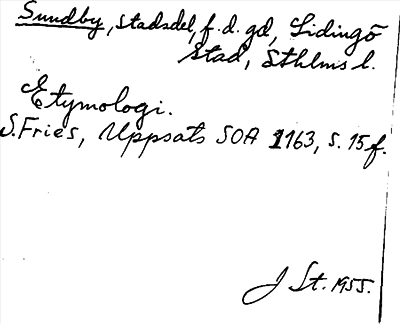 Sundby, stadsdel, f.d. gd, Lidingö
stad, Sthlms l.
Etymologi.
S. Fries, Uppsats SOA 1163, s. 15 f.
J St. 1955.